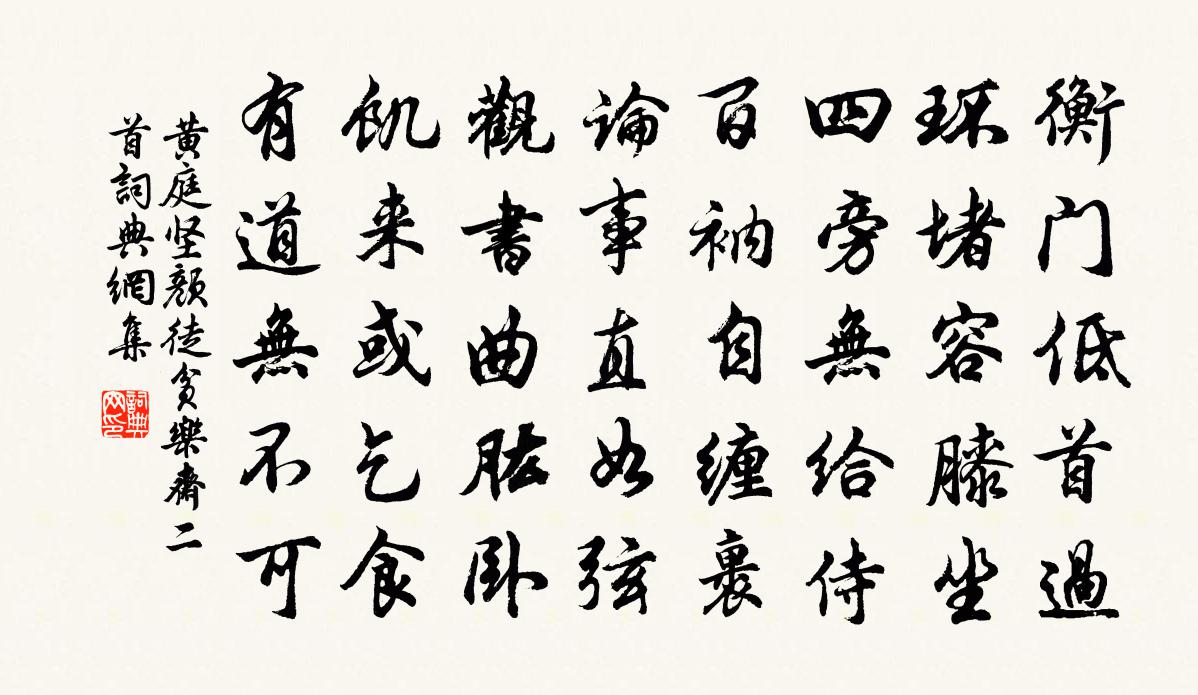 衡门低首過
环堵容膝坐
四旁無给侍
百衲自缠裹
論事直如弦
觀書曲肱卧
飢来或乞食
有道無不可
黄庭坚顏徒貧樂齋二
首詞典網集
詞典網印